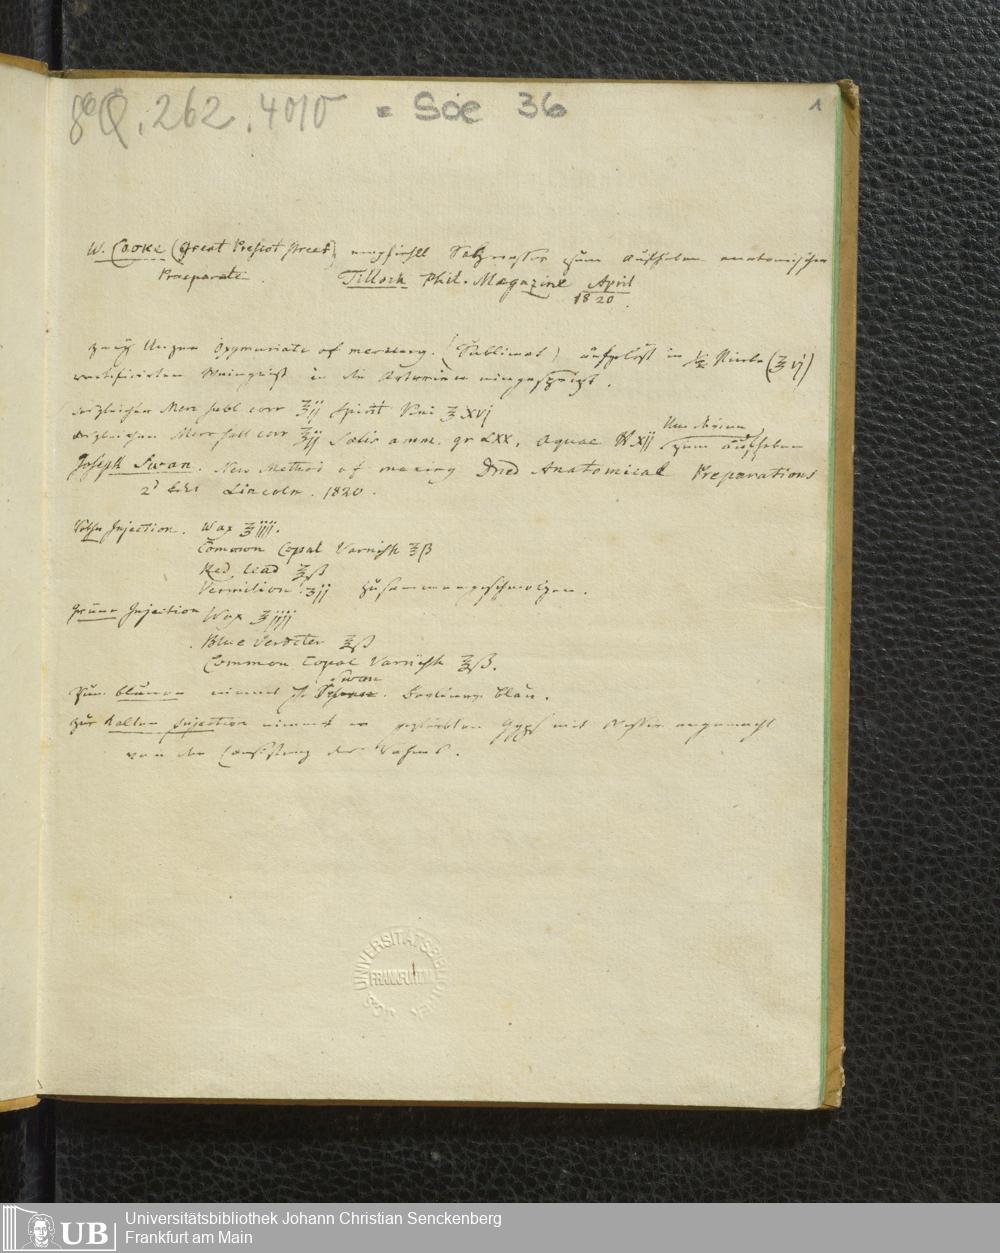 8° Q. 262. 4010 = Soe 36
1
W. Cooke (great Prescot street) empfiehlt Salzwasser zum Aufheben anatomischer
Praeparate. Tilloch Phil. Magazine April
1820.
zwey Unzen Oxymuriate of mercury. (Sublimat) aufgelöst in ½ (℥vj)
rectificirten Weingeist in die Arterien eingespritzt.
desgleichen Merc subl corr ℥ij Spirit Vini ℥xvj
desgleichen Merc subl corr ℥ij Salis amm. gr LXX, aquae ℔xij zum Aufheben
Joseph Swan. New Method of making Dried Anatomical Preparations
2d Edit Lincoln. 1820.
Rothe Injection. Wax ℥iiij.
Common Copal Varnish ℥ß
Red lead ℥ß
Vermilion ʒij zusammengeschmolzen.
Grüne Injection Wax ℥iiij
Blue Verditer ℥ß
Common Copal Varnish ℥ß.
Swan
Zum blauen nimmt Berliner blau.
zur kalten Injection nimmt er gefärbten Gyps mit Wasser angemacht
von der Consistenz des Rahms.
UNIVERSITÄTSBIBLIOTHEK
FRANKFURT
J.C.S.
UB
Universitätsbibliothek Johann Christian Senckenberg
Frankfurt am Main